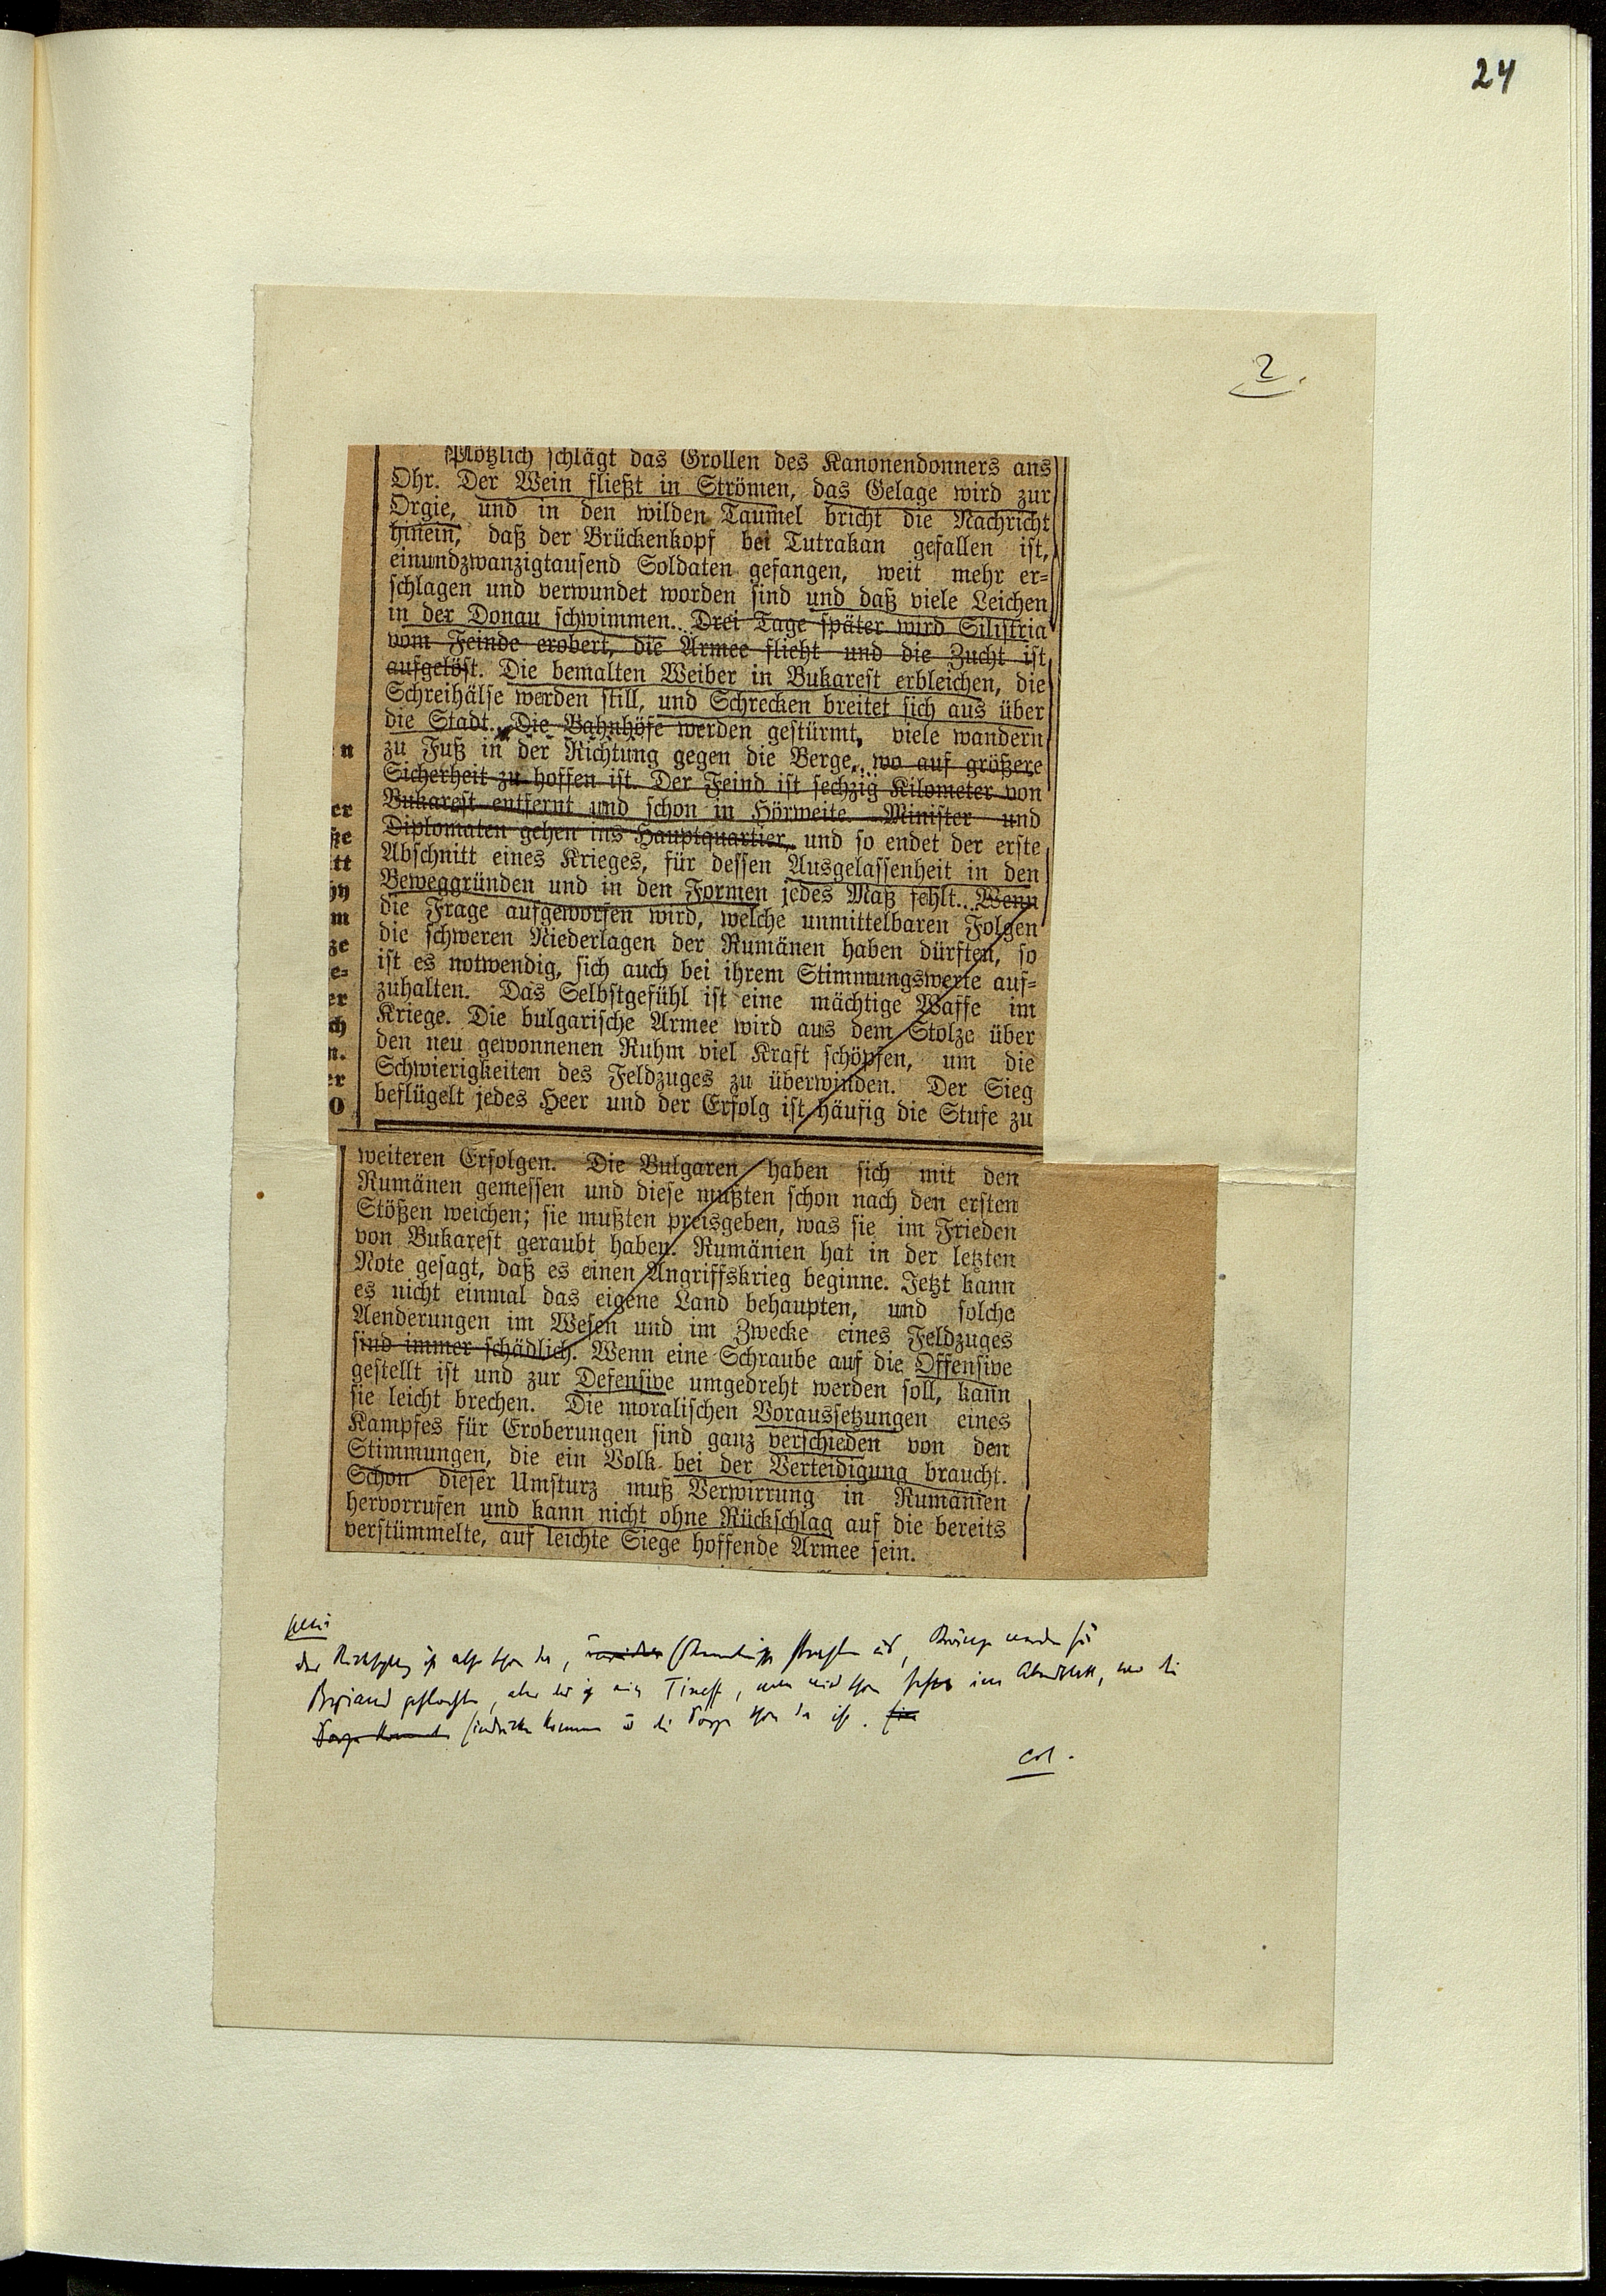 24
2.
Plötzlich schlägt das Grollen des Kanonendonners ans
Ohr. Der Wein fließt in Strömen, das Gelage wird zur
Orgie, und in den wilden Taumel bricht die Nachricht
hinein, daß der Brückenkopf bei Tutrakan gefallen ist,
einundzwanzigtausend Soldaten gefangen, weit mehr er-
schlagen und verwundet worden sind und daß viele Leichen
in der Donau schwimmen. Drei Tage später wird Silistria
vom Feinde erobert, die Armee flieht und die Zucht ist
aufgelöst. Die bemalten Weiber in Bukarest erbleichen, die
Schreihälse werden still, und Schrecken breitet sich aus über
die Stadt. Die Bahnhöfe werden gestürmt, viele wandern
n zu Fuß in der Richtung gegen die Berge, wo auf größere
Sicherheit zu hoffen ist. Der Feind ist sechzig Kilometer von
er Bukarest entfernt und schon in Hörweite. Minister und
ße Diplomaten gehen ins Hauptquartier, und so endet der erste
tt Abschnitt eines Krieges, für dessen Ausgelassenheit in den
Beweggründen und in den Formen jedes Maß fehlt. Wenn
m die Frage aufgeworfen wird, welche unmittelbaren Folgen
ze die schweren Niederlagen der Rumänen haben dürften, so
e- ist es notwendig, sich auch bei ihrem Stimmungswerte auf-
er zuhalten. Das Selbstgefühl ist eine mächtige Waffe im
ch Kriege. Die bulgarische Armee wird aus dem Stolze über
n. den neu gewonnenen Ruhm viel Kraft schöpfen, um die
er Schwierigkeiten des Feldzuges zu überwinden. Der Sieg
O beflügelt jedes Heer und der Erfolg ist häufig die Stufe zu
weiteren Erfolgen. Die Bulgaren haben sich mit den
Rumänen gemessen und diese mußten schon nach den ersten
Stößen weichen; sie mußten preisgeben, was sie im Frieden
von Bukarest geraubt haben. Rumänien hat in der letzten
Note gesagt, daß es einen Angriffskrieg beginne. Jetzt kann
es nicht einmal das eigene Land behaupten, und solche
Aenderungen im Wesen und im Zwecke eines Feldzuges
sind immer schädlich. Wenn eine Schraube auf die Offensive
gestellt ist und zur Defensive umgedreht werden soll, kann
sie leicht brechen. Die moralischen Voraussetzungen eines
Kampfes für Eroberungen sind ganz verschieden von den
Stimmungen, die ein Volk bei der Verteidigung braucht.
Schon dieser Umsturz muß Verwirrung in Rumänien
hervorrufen und kann nicht ohne Rückschlag auf die bereits
verstümmelte, auf leichte Siege hoffende Armee sein.
der Rückschlag ist also schon da,
aber
kommen die Sorge schon da ist.